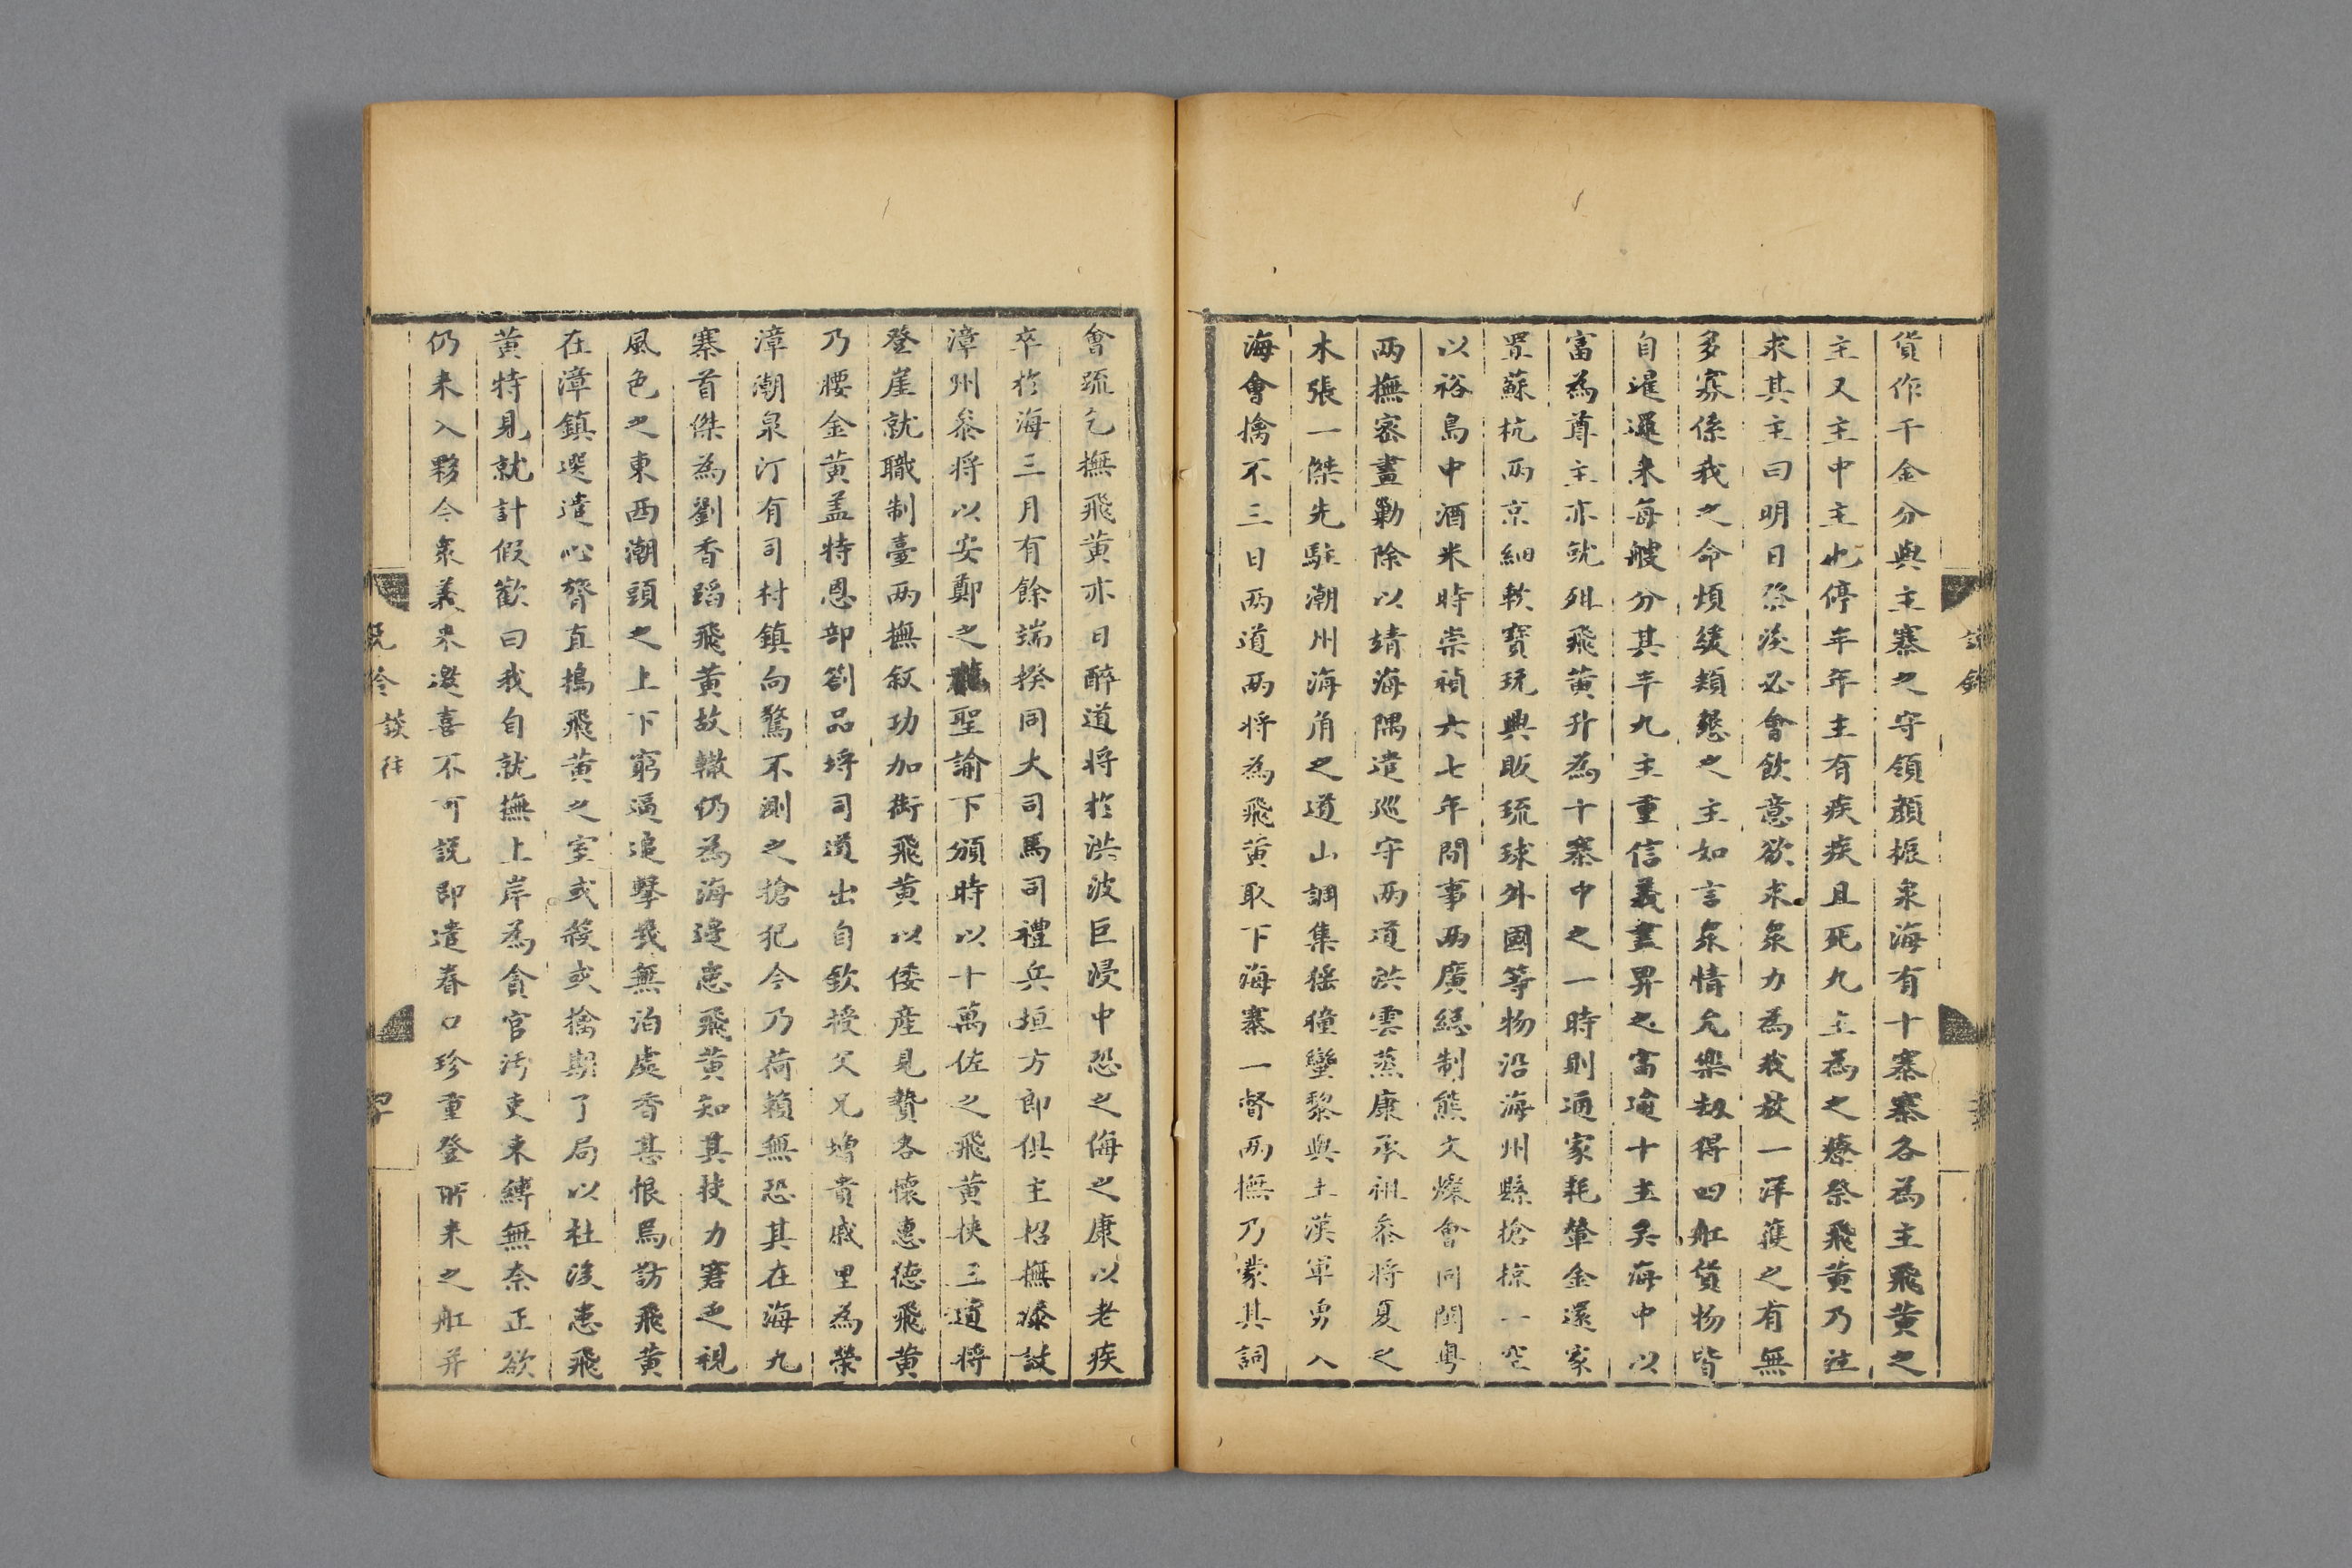 貨作千金分與主寨之守領顏振泉海有十寨寨各為主飛黃之
主又主中主也停年年主有疾疾且死九主為之療祭飛黃乃泣
求其主曰明日祭後必會飲意欲求泉力為我放一洋獲之有無
多寡係我之命煩緩頰懇之主如言泉情允樂劫得四舡貨物皆
自暹邏來每艘分其半九主重信義盡畀之富逾十主矣海中以
富為尊主亦就殂飛黃升為十寨中之一時則通家耗輦金還家
置蘇杭兩京細軟寶玩興販琉球外國等物沿海州縣搶掠一空
以裕島中酒米時崇禎六七年間事兩廣總制熊文燦會同閩粵
兩撫密畫勦除以靖海隅遣巡守兩道洪雲蒸康承祖叅將夏之
木張一傑先駐潮州海角之道山調集猺獞蠻黎與土漢軍勇入
海會擒不三日兩道兩將為飛黃取下海寨一督兩撫乃蒙其詞
會疏乞撫飛黃亦日醉道將於洪波巨浸中恐之侮之康以老疾
卒於海三月有餘端揆同大司馬司禮兵垣方郎俱主招撫條議
漳州叅將以安鄭之聖諭下頒時以十萬佐之飛黃挾三道將
登崖就職制臺兩撫叙功加銜飛黃以倭產見贄各懷惠德飛黃
乃腰金黃盖特恩部劄品埒司道出自欽授父兄增貴戚里為榮
漳潮泉汀有司村鎮向驚不測之搶犯今乃荷賴無恐其在海九
寨首傑為劉香蹈飛黃故轍仍為海邊患飛黃知其技力窘之視
風色之東西潮頭之上下窮逼追擊幾無泊處香甚恨焉訪飛黃
在漳鎮選遣心膂直搗飛黃之室或殺或擒期了局以杜後患飛
黃特見就計假歡曰我自就撫上岸為貪官汚吏束縛無奈正欲
仍來入夥今衆義來邀喜不可説即遣眷口珍重登所來之舡并
談往